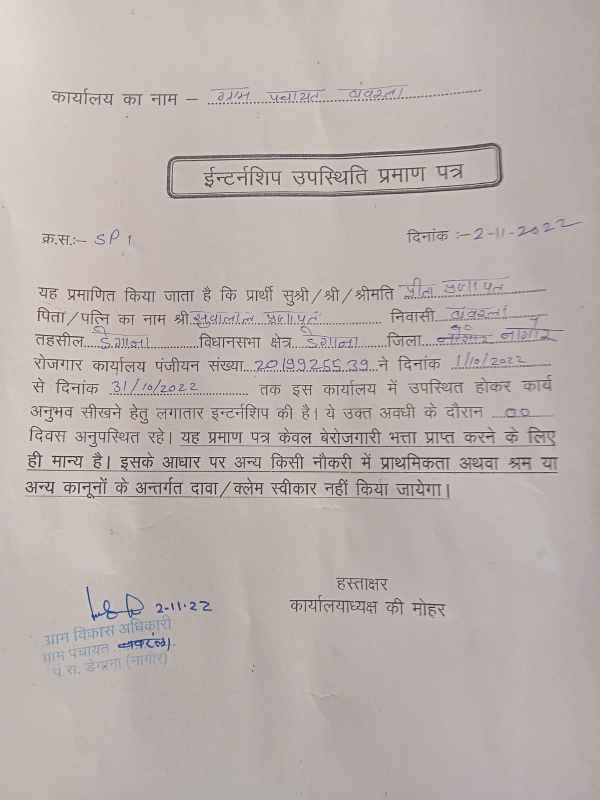 कार्यालय का नाम – ग्राम पंचायत
ईन्टर्नशिप उपस्थिति प्रमाण पत्र
क्र.स.:– SP 1
दिनांक :– 2-11-2022
यह प्रमाणित किया जाता है कि प्रार्थी सुश्री/श्री/श्रीमति
पिता/पत्नि का नाम श्री सुवालाल प्रजापत निवासी
तहसील डेगाना विधानसभा क्षेत्र डेगाना जिला नागौर
रोजगार कार्यालय पंजीयन संख्या ने दिनांक 1/10/2022
से दिनांक 31/10/2022 तक इस कार्यालय में उपस्थित होकर कार्य
अनुभव सीखने हेतु लगातार इन्टर्नशिप की है। ये उक्त अवधी के दौरान 00
दिवस अनुपस्थित रहे। यह प्रमाण पत्र केवल बेरोजगारी भत्ता प्राप्त करने के लिए
ही मान्य है। इसके आधार पर अन्य किसी नौकरी में प्राथमिकता अथवा श्रम या
अन्य कानूनों के अन्तर्गत दावा/क्लेम स्वीकार नहीं किया जायेगा।
हस्ताक्षर
कार्यालयाध्यक्ष की मोहर
2-11-22
ग्राम विकास अधिकारी
ग्राम पंचायत
पं.स. डेगाना (नागौर)